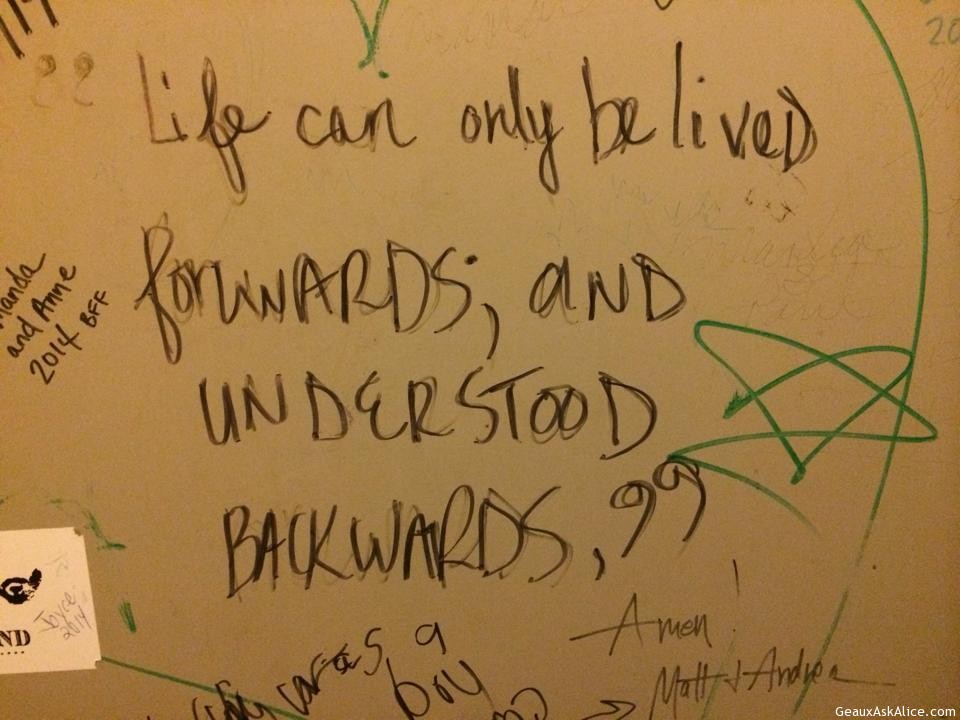 “
Life can only be lived
forWARDS, aND
UNDERSTOOD
BACKWARDS, ”
and Anne
2014 BFF
Joyce
2014
ND
was a
boy
Amen!
Matt + Andrea
20
GeauxAskAlice.com